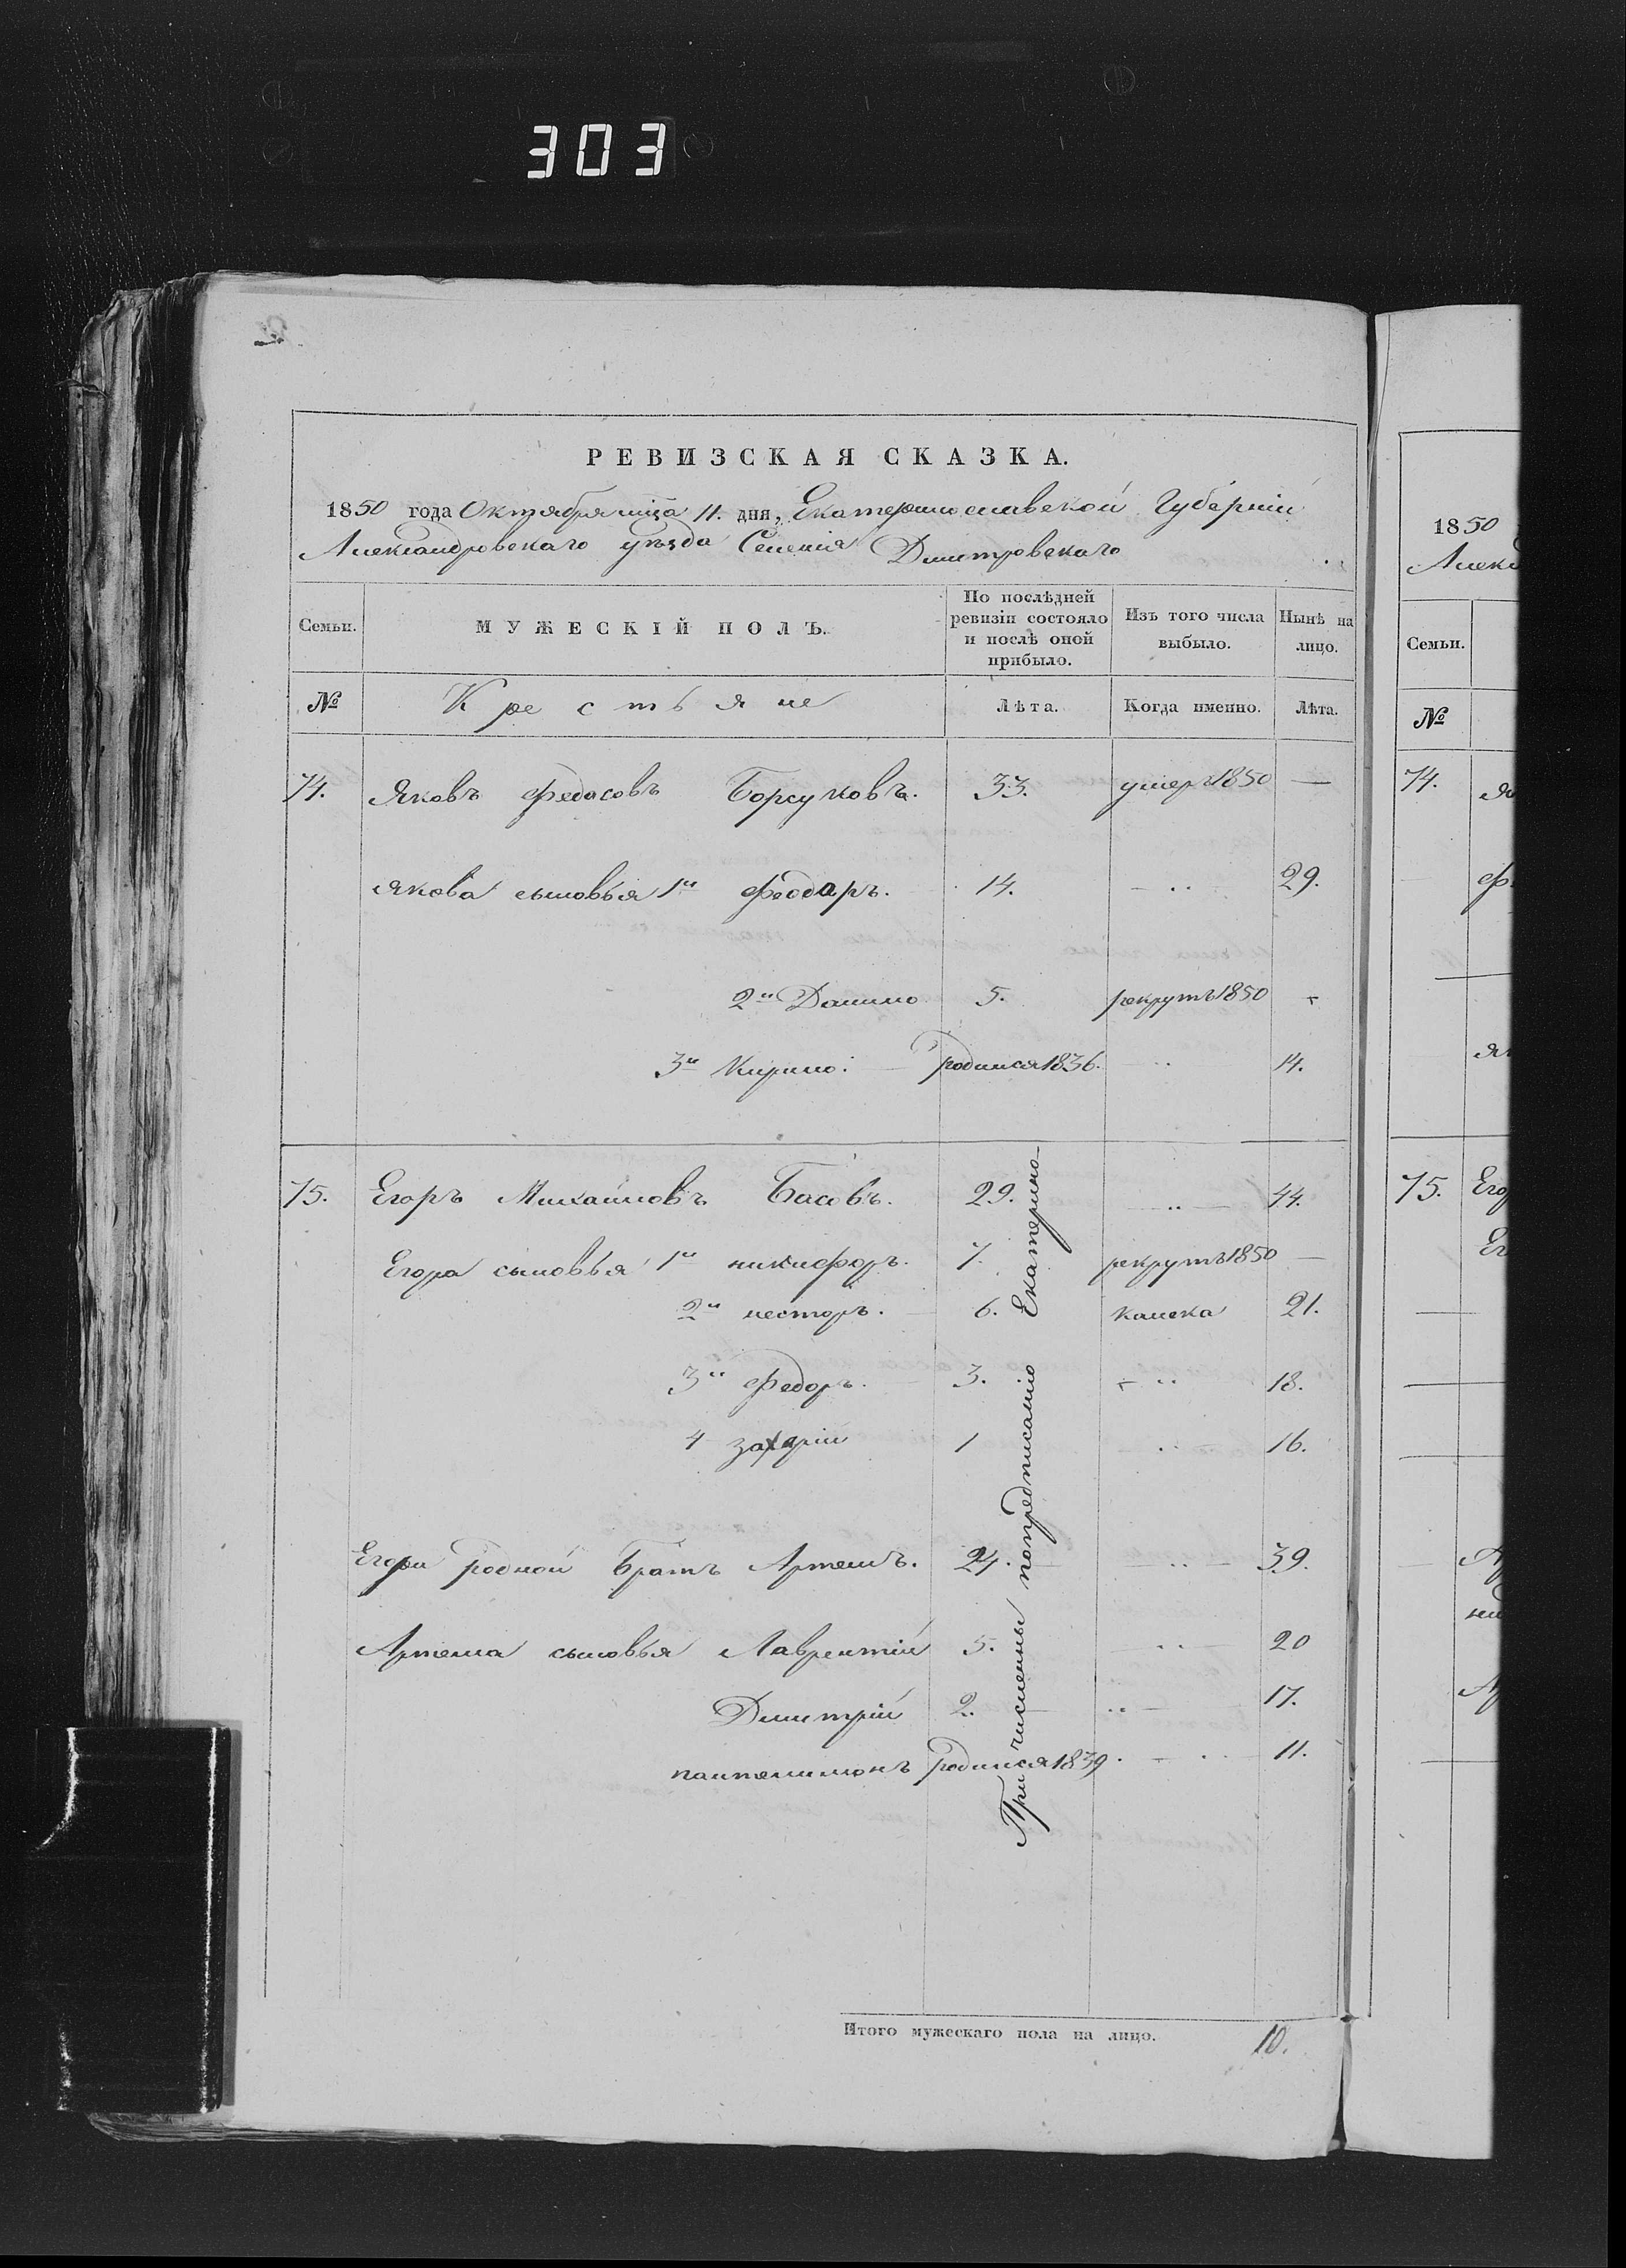 303
РЕВИЗСКАЯ СКАЗКА.
1850 года Октября мца 11. дня, Екатеринославской Губерніи
Александровскаго уѣзда Селенія Дмитровскаго
Семьи. МУЖЕСКІЙ ПОЛЪ. По послѣдней ревизіи состояло и послѣ оной прибыло. Изъ того числа выбыло. Нынѣ на лицо.
№ Крестьяне Лѣта. Когда именно. Лѣта.
74. Яковъ Федосовъ Борсуковъ. 33. умеръ 1850 —
Якова сыновья 1й Феодаръ. 14. — ·· 29.
2й Данило 5. рекрутъ 1850
3й Кирило: родился 1836. ·· 14.
75. Егоръ Михайловъ Басовъ. 29. — ·· — 44.
Егора сыновья 1й никифоръ. 7. рекрутъ 1850 —
2й несторъ. 6. калека 21.
3й Федоръ. 3. ·· 18.
4 захарій 1 ·· 16.
Егора родной Братъ Артемъ. 24. — ·· — 39.
Артема сыновья Лаврентій 5. ·· — 20
Дмитрій 2. ·· — 17.
пантелимонъ родился 1839 · — ·· — 11.
Причислены попредписанію Екатерино-
Итого мужескаго пола на лицо. 10.
1850
Алекс
Семьи.
№
74. Як
75. Его
Ег